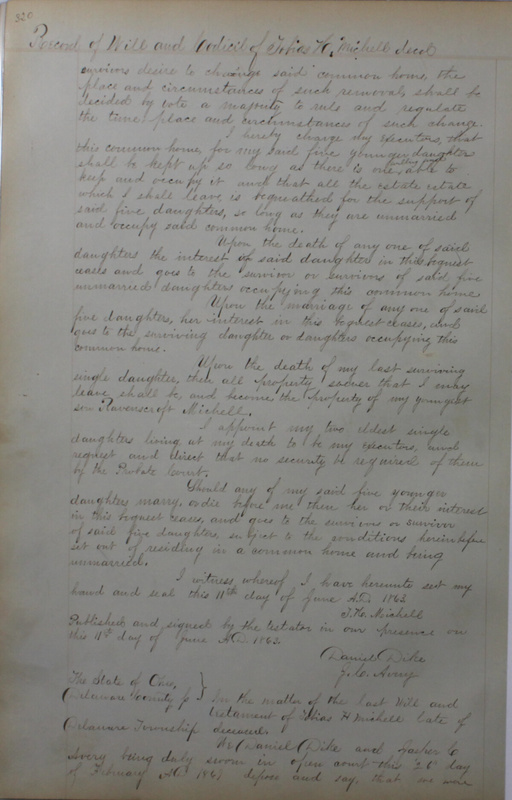 320
Record of Will and Codicil of Tobias H. Michell Decd
survivors desire to change said common home, the
place and circumstances of such removal, shall be
decided by vote a majority to rule and regulate
the time place and circumstances of such change.
I hereby charge my executors, that
this common home, for my said five younger daughters
shall be kept up so long as there is one able to
keep and occupy it and that all the estate
which I shall leave, is bequeathed for the support of
said five daughters, so long as they are unmarried
and occupy said common home.
Upon the death of any one of said
daughters the interest of said daughter in this bequest
ceases and goes to the survivor or survivors of said five
unmarried daughters occupying this common home
Upon the marriage of any one of said
five daughters, her interest in this bequest ceases, and
goes to the surviving daughter or daughters occupying this
common home.
Upon the death of my last surviving
single daughter, then all property that I may
leave shall be, and become the property of my youngest
son Ravenscroft Michell.
I appoint my two eldest single
daughters living at my death to be my executors, and
request and direct that no security be required of them
by the Probate Court.
Should any of my said five younger
daughters marry, or die before me then her or their interest
in this bequest ceases, and goes to the survivors or survivor
of said five daughters, subject to the conditions hereinbefore
set out of residing in a common home and being
unmarried.
I witness whereof I have hereunto set my
hand and seal this 11th day of June A.D. 1863
T. H. Michell
Published and signed by the testator in our presence on
this 11th day of June A.D. 1863.
Daniel Dike
J. C. Avery
The State of Ohio,
Delaware County } In the matter of the last Will and
testament of Tobias H Michell late of
Delaware Township deceased.
We (Daniel Dike and Jasper C
Avery being duly sworn in open court this 26 day
of February AD 186 depose and say, that we were